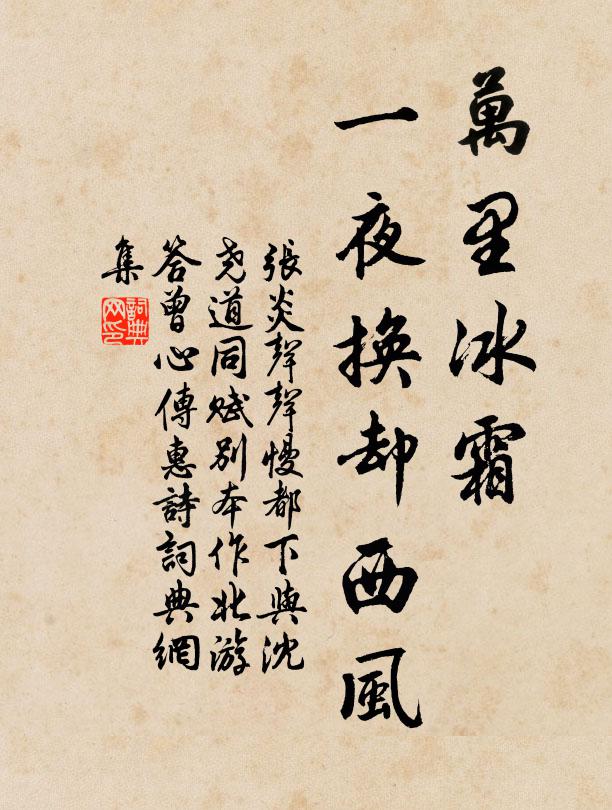 萬里冰霜
一夜換却西風
張炎聲聲慢都下與沈
堯道同賦別本作北游
答曾心傳惠詩詞典網
集
詞典网印